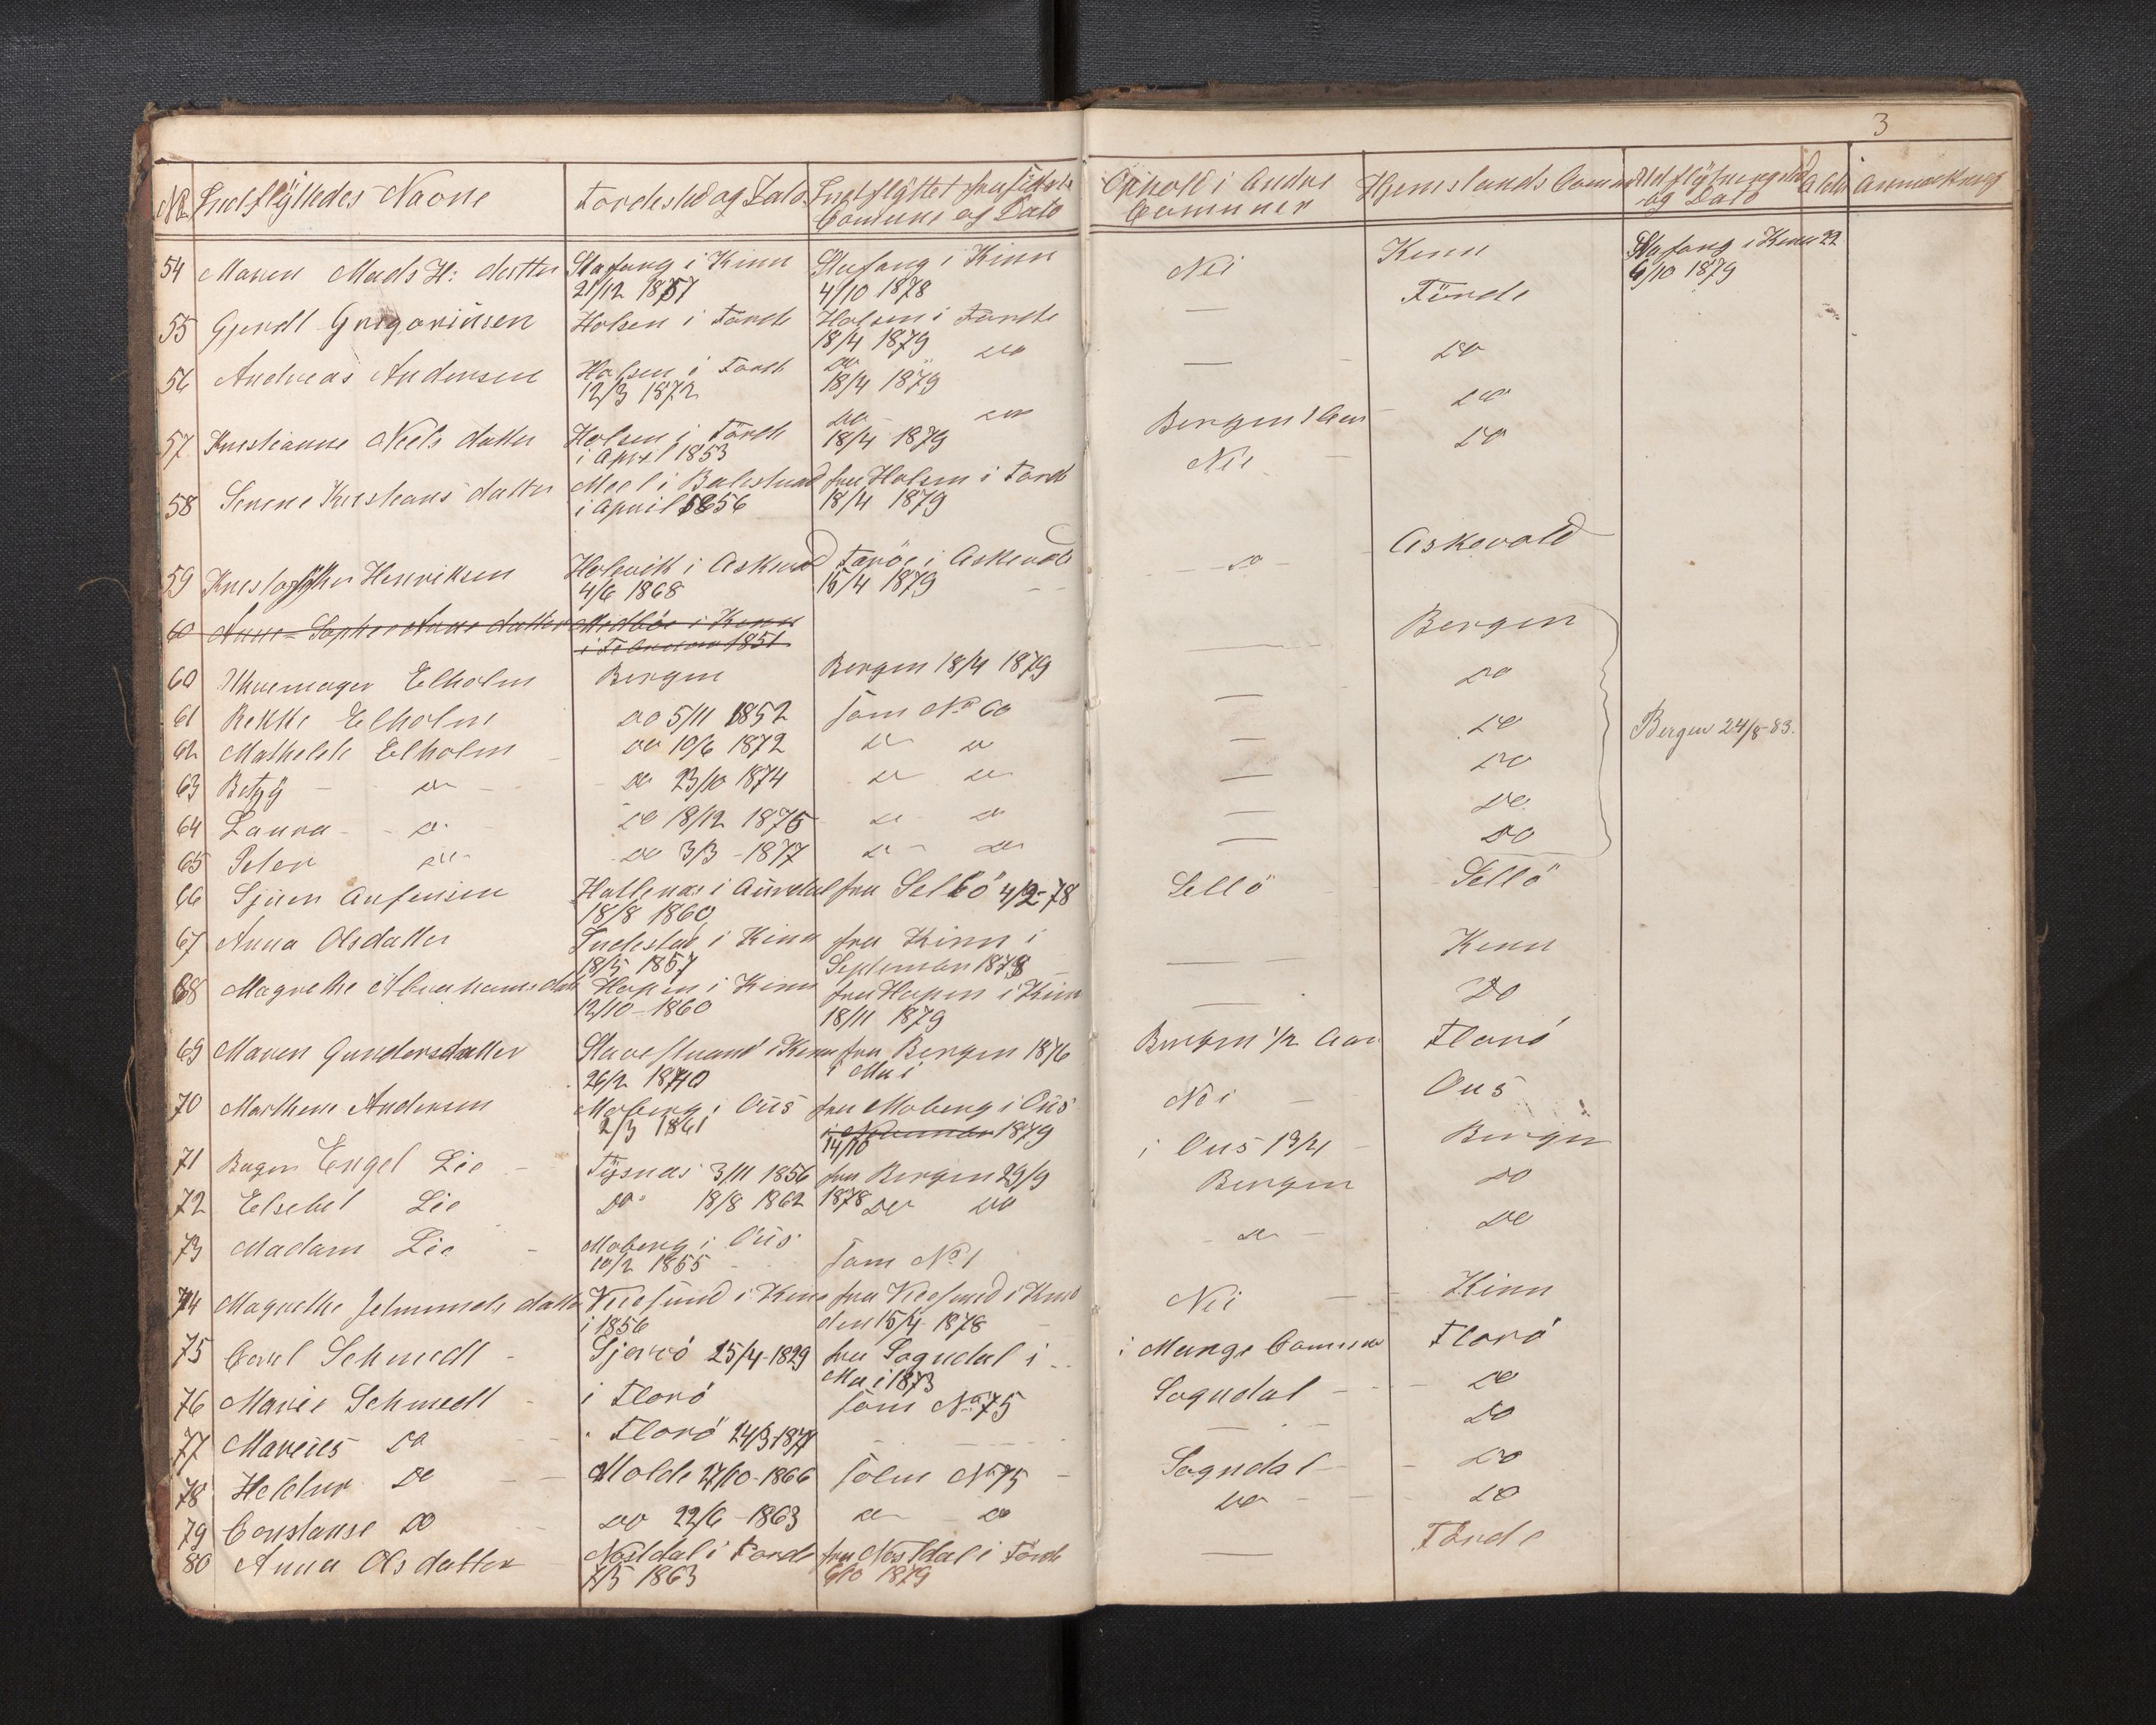 3
No Indflyttedes Navne Fødested og Dato Indflyttet fra sidste Ophold i Andre Hjemstands Comune Udflytningssted Alder Anmærkning
Comune og Dato Comuner og Dato
54 Maren Mads H: datter Stafang i Kinn Stafang i Kinn Nei Kinn Stafang i Kinn 22
21/12 1857 4/10 1878 6/10 1879
55 Gjerdt Grigoriusen Holsen i Førde Holsen i Førde — Førde
18/4 1879
56 Andreas Andersen Holsen i Førde Do Do — Do
12/3 1872 18/4 1879
57 Kristianne Neels datter Holsen i Førde Do Do Bergen 1 Aar Do
i April 1853 18/4 1879
58 Serene Kristians datter Meel i Balestrand fra Holsen i Førde Nei Do
i April 1856 18/4 1879
59 Kristoffer Henriksen Holevik i Askevold Farøe i Askevold Do Askevold
4/6 1868 15/4 1879
60 Anne Sophie Anne datter Midbøe i Kinn
i Februar 1851
60 Uhrmager Elholm Bergen Bergen 18/4 1879 — Bergen
61 Rekke Elholm Do 5/11 1852 som No 60 — Do
62 Mathelde Elholm Do 10/6 1872 Do Do — Do Bergen 24/8-83.
63 Betzÿ Do Do 23/10 1874 Do Do — Do
64 Laura Do Do 18/12 1875 Do Do — Do
65 Peter Do Do 3/3 - 1877 Do Do — Do
66 Sjuen Anfensen i Aurdal fra Sellö 4/2-78 Sellö Sellö
18/8 1860
67 Anna Olsdatter Indestad i Kinn fra Kinn i — Kinn
18/5 1857 September 1878
68 Magrethe Abrahams datt Hopen i Kinn fra Hopen i Kinn — Do
12/10 - 1860 18/11 1879
69 Maren Gundersdatter Stavestrand i Kinn fra Bergen 1876 Bergen 1/2 Aar Florö
26/2 1840 i Mai
70 Marthene Andersen Moberg i Ous fra Moberg i Ous Nei Ous
2/3 1861 i November 1879
14/10
71 Engel Lie Tysnæs 3/11 1856 fra Bergen 29/9 i Ous 1 3/4 Bergen
1878
72 Elsebet Lie Do 18/8 1862 Do Do Bergen Do
73 Madam Lie Moberg i Ous som No 1 Do Do
10/2 1855
74 Magrethe datter i Kinn fra i Kinn Nei Kinn
i 1856 den 15/4 1878
75 Carl Schmedt 25/4-1829 fra Sogndal i i Mange Comuner Florö
Mai 1873
76 Marie Schmedt i Florö som No 75 Sogndal Do
77 Marius Do Florö 24/3-1871 — Do
78 Heldur Do Molde 27/10-1866 som No 75 Sogndal Do
79 Constanse Do Do 22/6 - 1863 Do Do Do Do
80 Anna Olsdatter i Førde fra i Førde — Førde
7/5 1863 6/10 1879